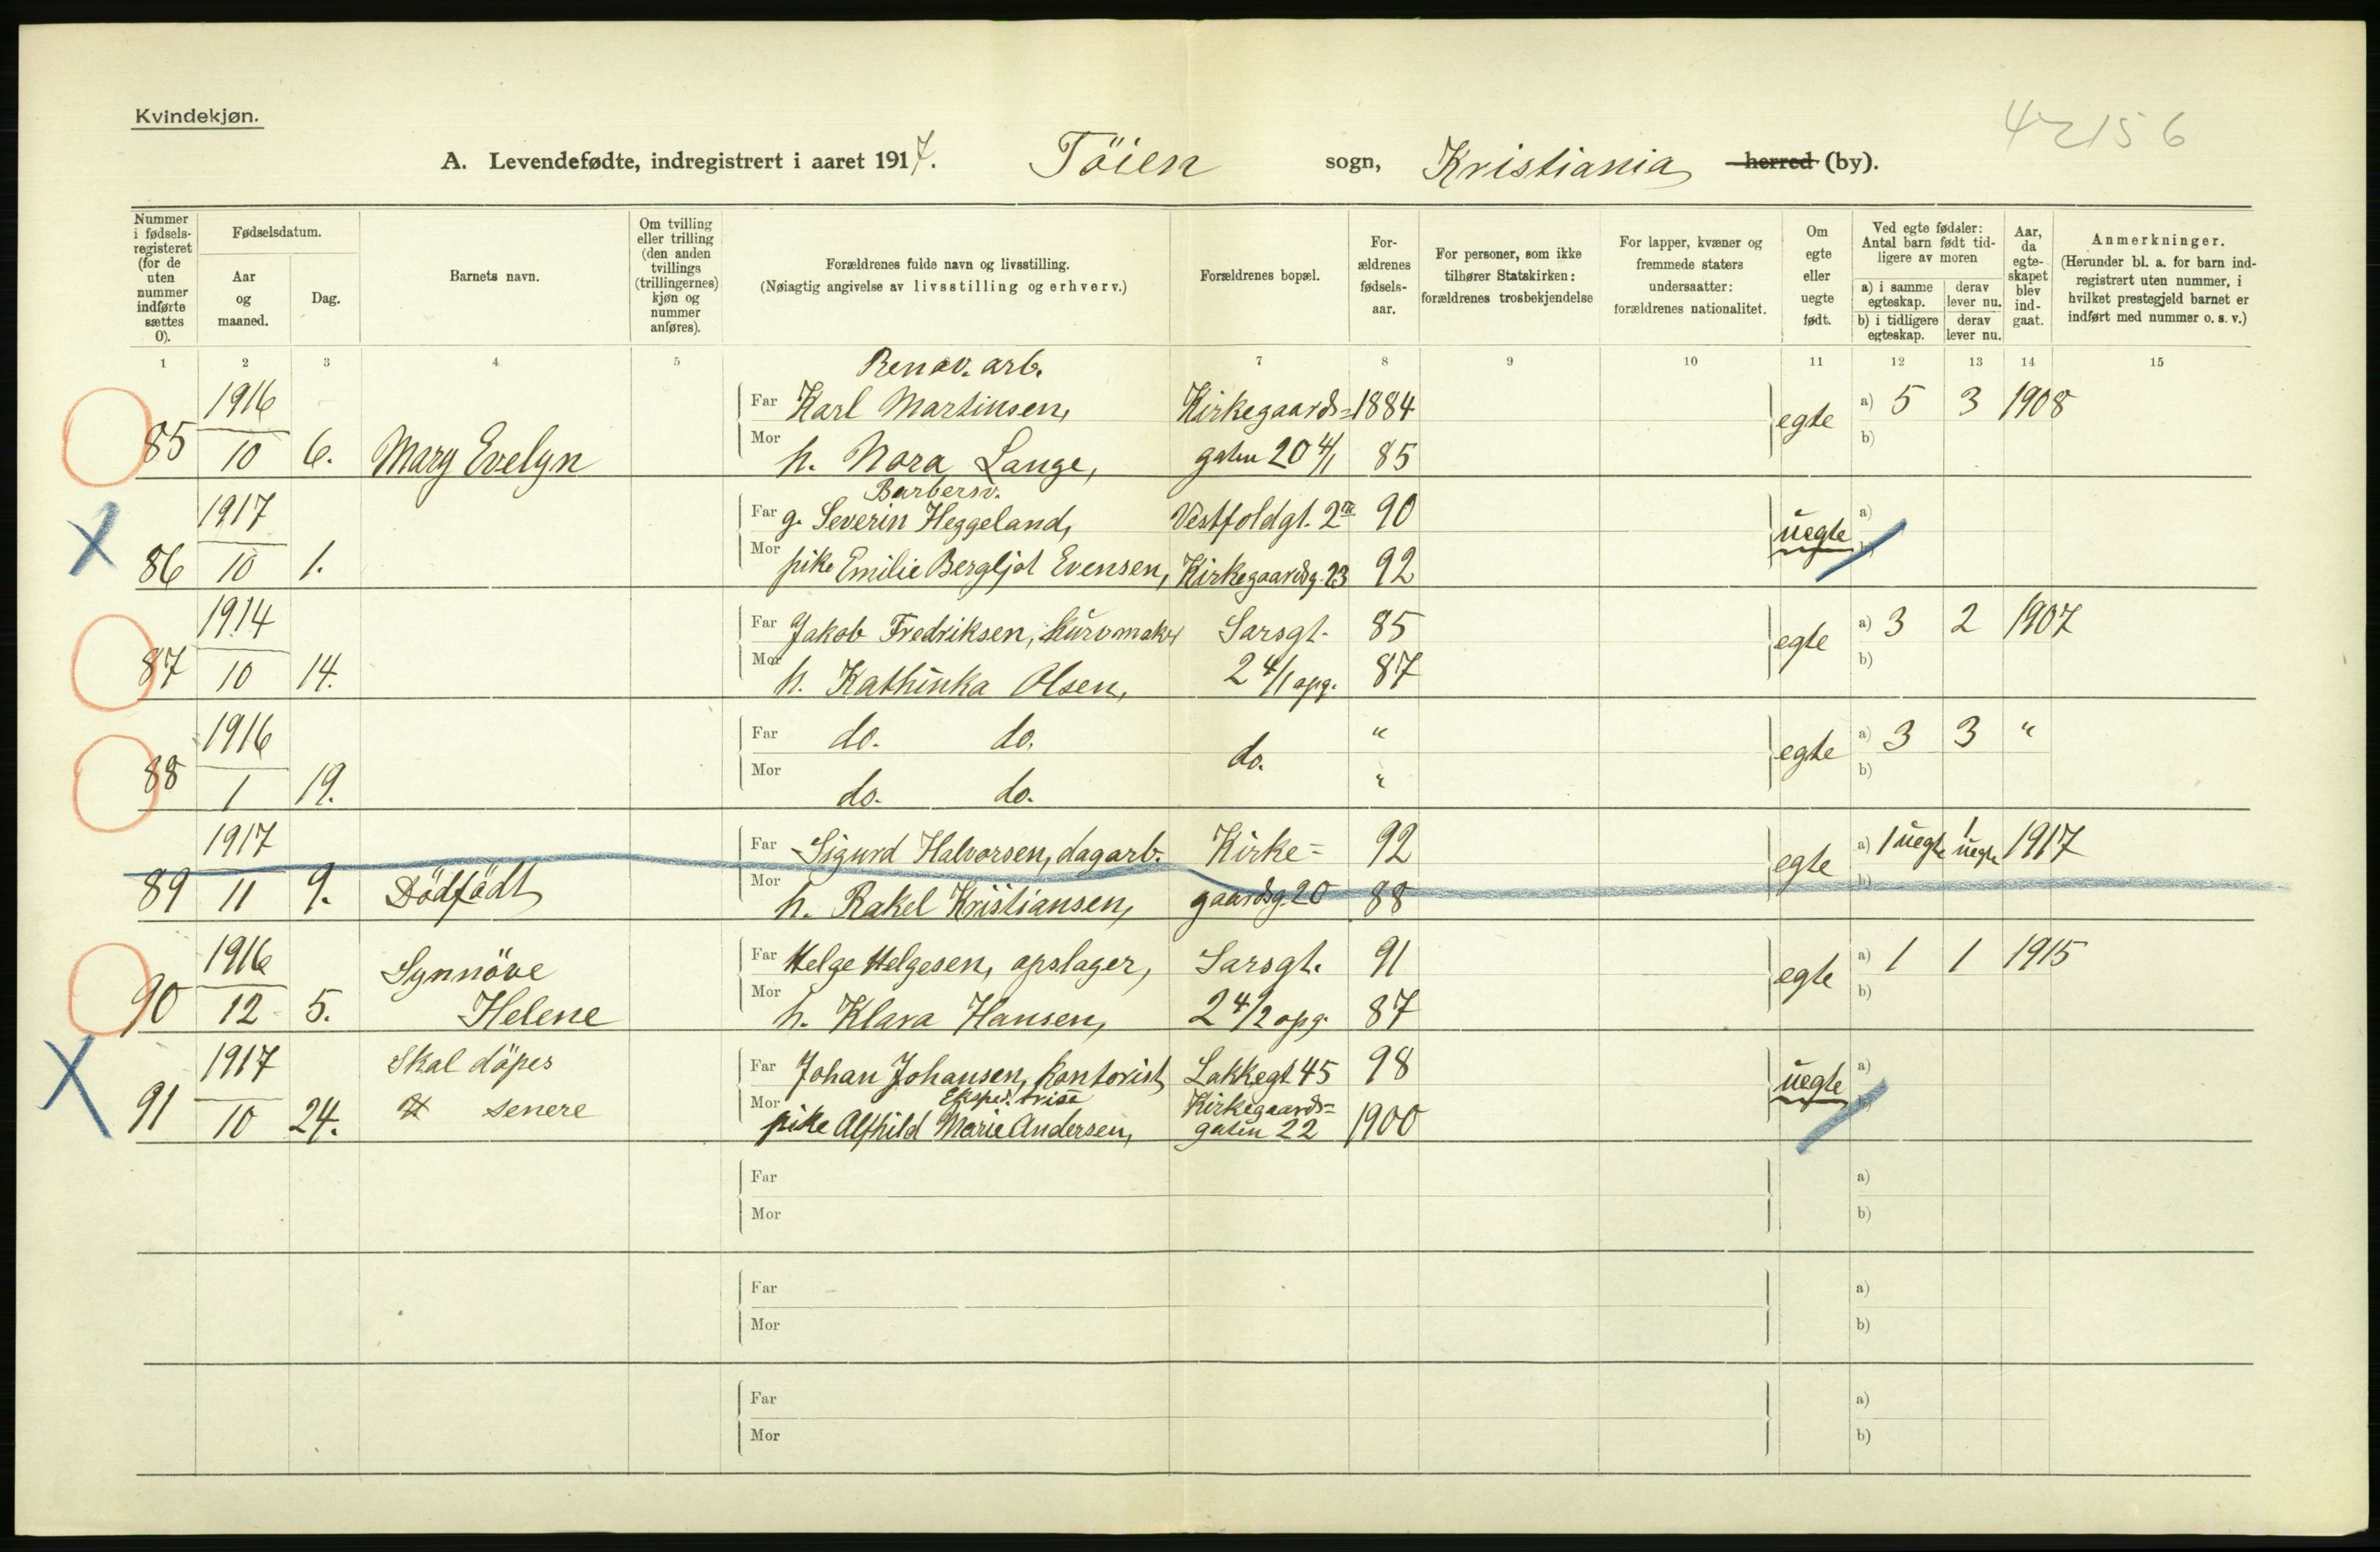 Kvindekjøn.
42156
A. Levendefødte, indregistrert i aaret 1917. Töien sogn, Kristiania herred (by).
Nummer i fødsels-registeret (for de uten nummer indførte sættes 0).
Fødselsdatum.
Aar og maaned.
Dag.
Barnets navn.
Om tvilling eller trilling (den anden tvillings (trillingernes) kjøn og nummer anføres).
Forældrenes fulde navn og livsstilling.
(Nøiagtig angivelse av livsstilling og erhverv.)
Forældrenes bopæl.
For-ældrenes fødsels-aar.
For personer, som ikke tilhører Statskirken: forældrenes trosbekjendelse
For lapper, kvæner og fremmede staters undersaatter: forældrenes nationalitet.
Om egte eller uegte født.
Ved egte fødsler: Antal barn født tid-ligere av moren
a) i samme egteskap. derav lever nu.
b) i tidligere egteskap. derav lever nu.
Aar, da egte-skapet blev ind-gaat.
Anmerkninger.
(Herunder bl. a. for barn ind-registrert uten nummer, i hvilket prestegjeld barnet er indført med nummer o. s. v.)
1 2 3 4 5 7 8 9 10 11 12 13 14 15
Renov. arb.
1916 Far Karl Martinsen, Kirkegaards= 1884 egte a) 5 3 1908
85 10 6. Mary Evelyn Mor h. Nora Lange, gaten 20 4/1 85 b)
Barbersv.
1917 Far g. Severin Heggeland, Vestfoldgt. 2 90 uegte a)
86 10 1. Mor pike Emilie Bergljot Evensen, Kirkegaardsg. 23 92 b)
1914 Far Jakob Fredriksen, kurvmaker Sarsgt. 85 egte a) 3 2 1907
87 10 14. Mor h. Kathinka Olsen, 2 4/1 opg. 87 b)
1916 Far do. do. do. " egte a) 3 3 "
88 1 19. Mor do. do. " b)
1917 Far Sigurd Halvorsen, dagarb. Kirke= 92 egte a) 1 uegte 1 uegte 1917
89 11 9. Dödfödt Mor h. Rakel Kristiansen, gaardsg. 20 88 b)
1916 Synnöve Far Helge Helgesen, opslager, Sarsgt. 91 egte a) 1 1 1915
90 12 5. Helene Mor h. Klara Hansen, 2 4/2 opg. 87 b)
1917 Skal döpes Far Johan Johansen, kontorist Lakkegt 45 98 uegte a)
91 10 24. senere Mor Eksped. trise pike Alfhild Marie Andersen, Kirkegaards= gaten 22 1900 b)
Far a)
Mor b)
Far a)
Mor b)
Far a)
Mor b)